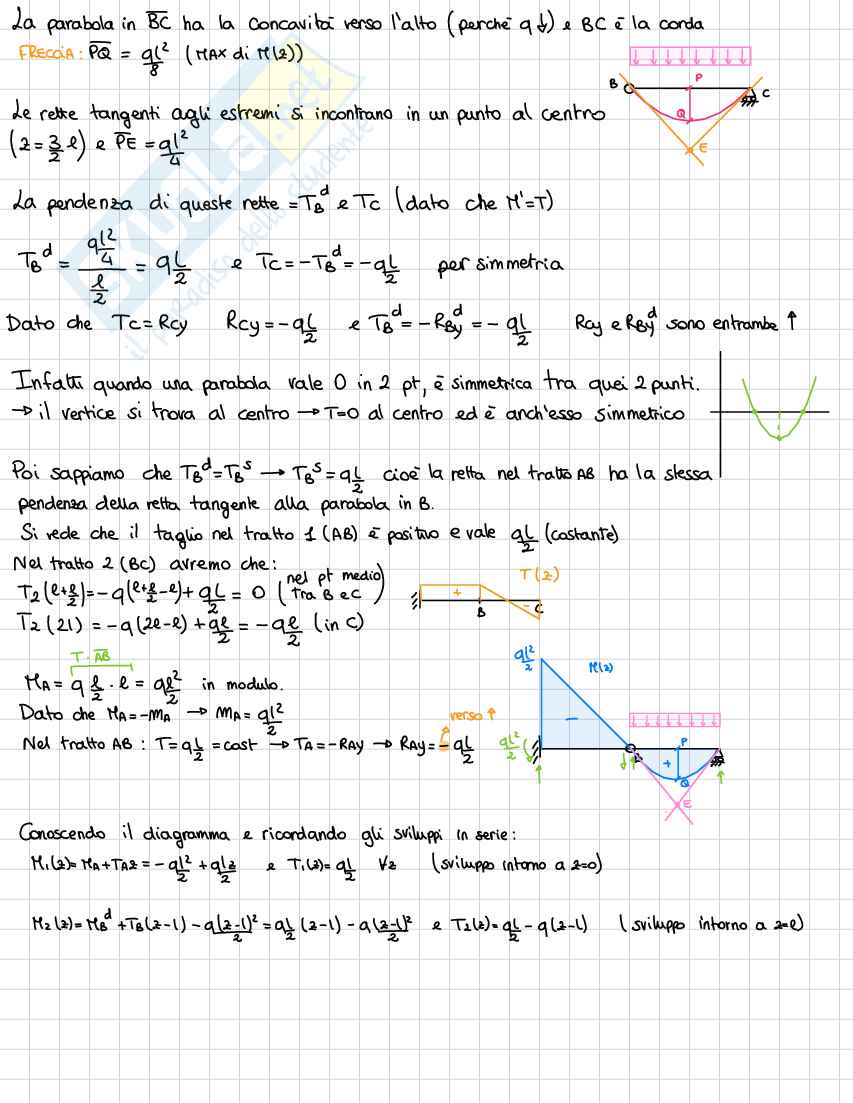 La parabola in BC ha la concavità verso l'alto (perchè q ↓) e BC è la corda
FRECCIA: PQ = ql²/8 (MAX di M(z))
B P C
Q
E
Le rette tangenti agli estremi si incontrano in un punto al centro
(z = 3/2 l) e PE = ql²/4
La pendenza di queste rette = T_B^d e T_C (dato che M'=T)
T_B^d = (ql²/4)/(l/2) = ql/2 e T_C = -T_B^d = -ql/2 per simmetria
Dato che T_C = R_Cy R_Cy = -ql/2 e T_B^d = -R_By^d = -ql/2 R_Cy e R_By^d sono entrambe ↑
Infatti quando una parabola vale 0 in 2 pt, è simmetrica tra quei 2 punti.
→ il vertice si trova al centro → T=0 al centro ed è anch'esso simmetrico
Poi sappiamo che T_B^d = T_B^s → T_B^s = ql/2 cioè la retta nel tratto AB ha la stessa
pendenza della retta tangente alla parabola in B.
Si vede che il taglio nel tratto 1 (AB) è positivo e vale ql/2 (costante)
Nel tratto 2 (BC) avremo che:
T₂(l+l/2) = -q(l+l/2-l) + ql/2 = 0 (nel pt medio tra B e C)
T₂(2l) = -q(2l-l) + ql/2 = -ql/2 (in C)
T(z)
+ B - C
T·AB
M_A = q l/2 · l = ql²/2 in modulo.
Dato che M_A = -m_A → m_A = ql²/2
verso ↑
Nel tratto AB : T = ql/2 = cost → T_A = -R_Ay → R_Ay = -ql/2
ql²/2 M(z)
-
ql²/2
P
+
Q
E
Conoscendo il diagramma e ricordando gli sviluppi in serie:
M₁(z) = M_A + T_A z = -ql²/2 + qlz/2 e T₁(z) = ql/2 ∀z (sviluppo intorno a z=0)
M₂(z) = M_B^d + T_B(z-l) - q(z-l)²/2 = ql/2 (z-l) - q(z-l)²/2 e T₂(z) = ql/2 - q(z-l) (sviluppo intorno a z=l)
SKUOLA.net
il paradiso dello studente